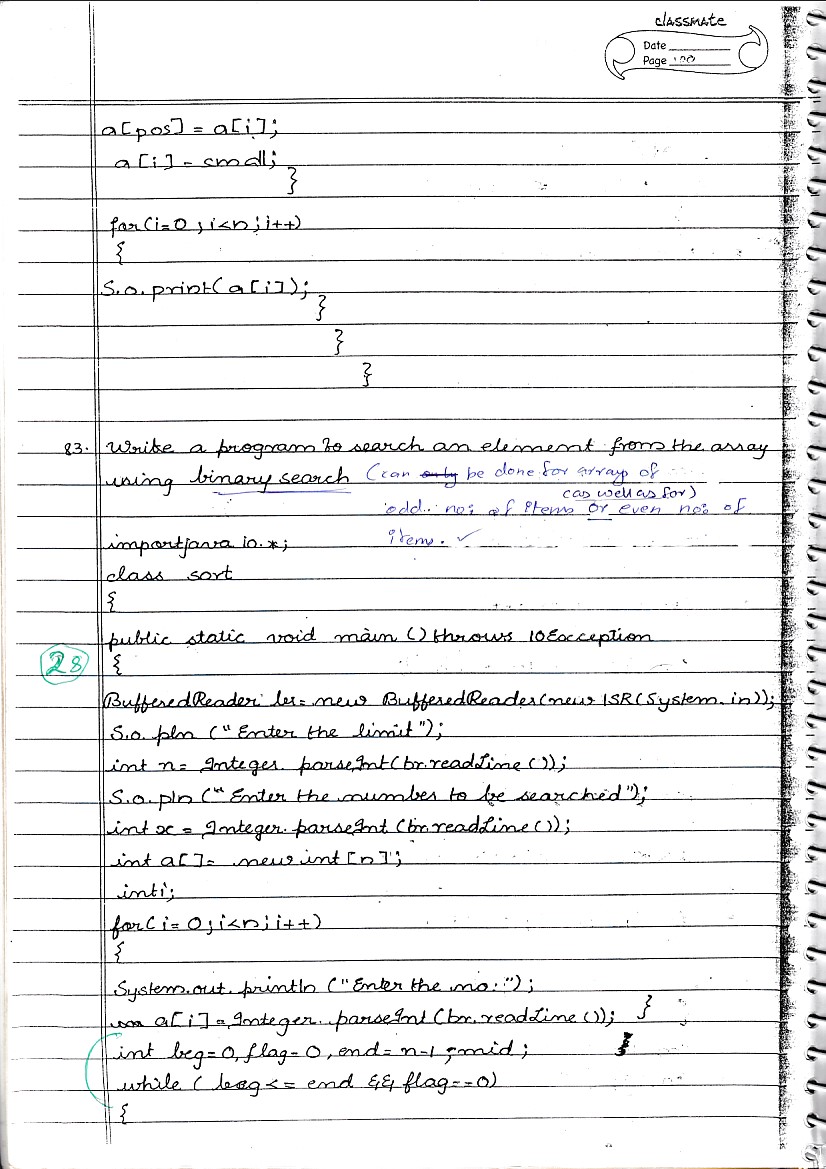 classmate
Date
Page 100
a[pos] = a[i];
a[i] = small;
}
for(i=0; i<n; i++)
{
S.o.print(a[i]);
}
}
}
83. Write a program to search an element from the array
using binary search (can only be done for array of
(as well as for)
odd no: of items or even no: of
items. ✓
import java io.*;
class sort
{
public static void main () throws IOException
28
{
BufferedReader br= new BufferedReader(new ISR(System.in));
S.o.pln ("Enter the limit");
int n= Integer.parseInt(br.readLine());
S.o.pln ("Enter the number to be searched");
int x = Integer.parseInt (br.readLine());
int a[]= new int [n];
int i;
for(i=0; i<n; i++)
{
System.out.println ("Enter the no:");
a[i] = Integer.parseInt (br.readLine()); }
int beg=0, flag=0, end=n-1, mid;
while ( beg<= end && flag==0)
{